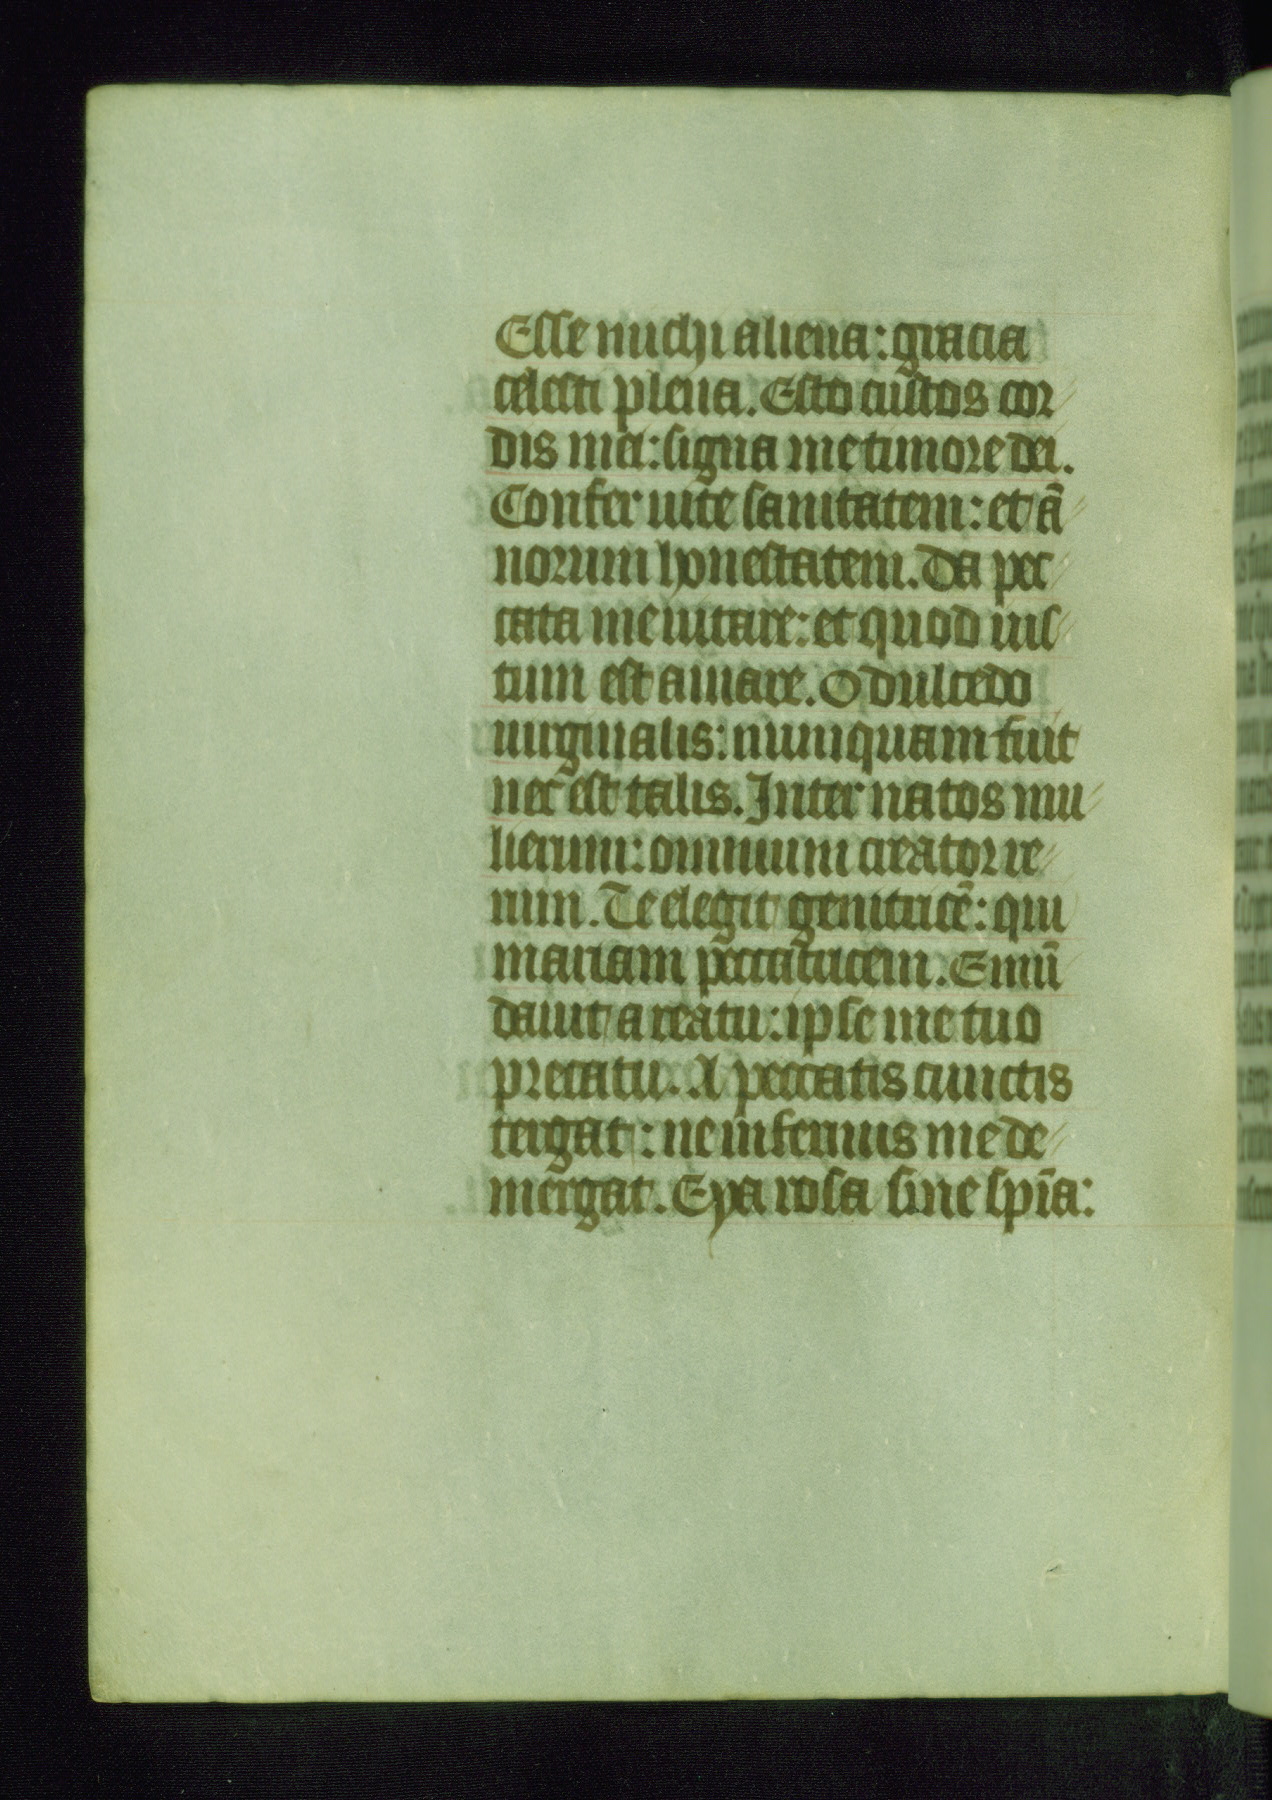 Esse michi aliena: gracia
celesti plena. Esto custos cor
dis mei: signa me timore dei.
Confer uite sanitatem: et a᷃
norum honestatem. Da pec
cata me uitare: et quod ius
tum est amare. O dulcedo
uirginalis: nunquam fuit
nec est talis. Inter natos mu
lierum: omnium creator re
rum. Te elegit genitricẽ: qui
mariam peccatricem. Emũ
dauit a reatu: ipse me tuo
precatu. A peccatis cunctis
tergat: ne infernus me de
mergat. Eya rosa sine spĩa: